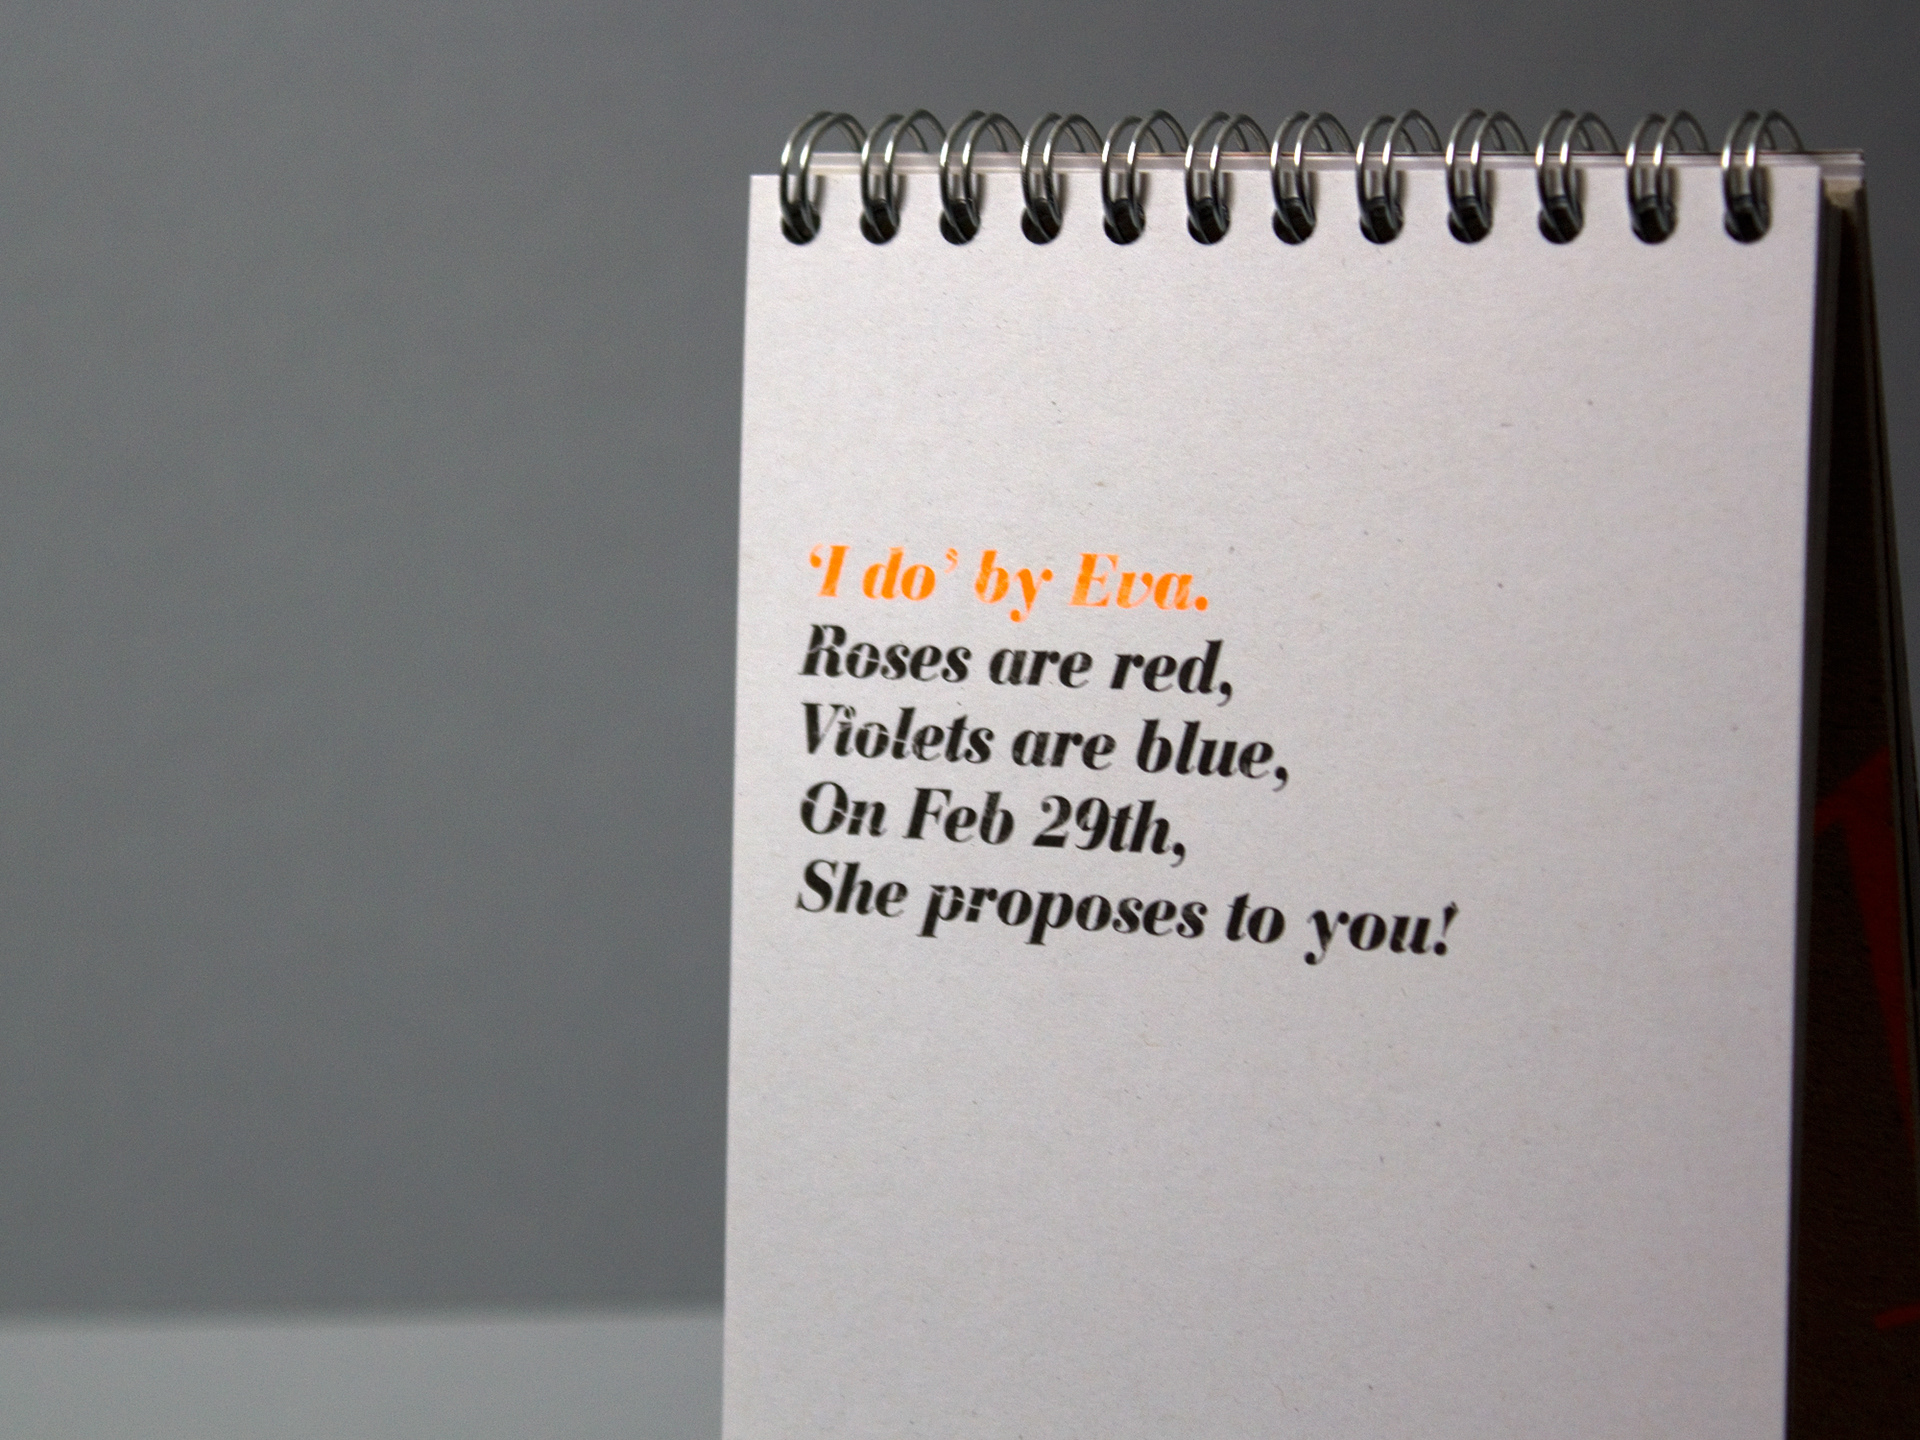 ‘I do’ by Eva.
Roses are red,
Violets are blue,
On Feb 29th,
She proposes to you!